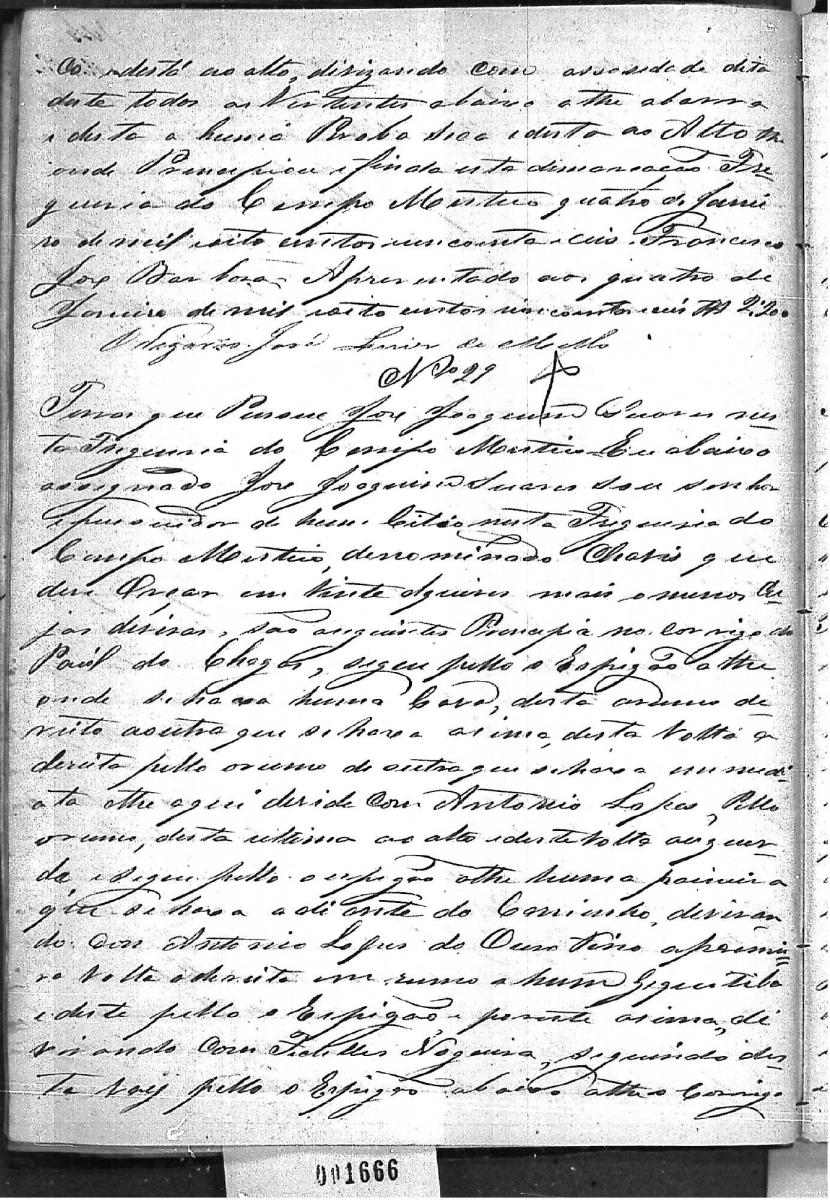 ao alto, divizando com a sociedade dita
deste todos as Vertentes abaixo athe abarra
e desta a huma Peroba seca e desta ao Alto
onde Principiou e finda esta demarcação Fre-
guezia do Campo Mestico quatro de Janei-
ro de mil oito centos cincoenta e seis. Francisco
Jose Barboza. Aprezentado aos quatro de
Janeiro de mil oito centos cincoenta e seis 2:200
O Vigario José de Mello
No 29
Terras que Pussue Jose Joaquim Suares nes-
ta Freguezia do Campo Mestico Eu abaixo
assignado Jose Joaquim Suares sou senhor
e pussuidor de hum Citio nesta Freguezia do
Campo Mestico, denominado que
leva em vinte alqueires mais o menos Cu-
jas divizas, são as siguintes Principia no corrigo do
Paúl do Chagas, segue pello o Espigão athe
onde se haxa huma Cova, desta a rumo de-
reito a outra que se haxa asima, desta volta a
dereita pello o rumo de outra que se haxa
athe aqui devide com Antonio Lopes, Pello
o rumo, desta ultima ao alto e deste volta a esquer-
da e segue pello o espigão athe huma paineira
que se haxa a diante do Caminho, devizan-
do con Antonio Lopes do Ouro Fino
volta a dereita em rumo a hum Gequitiba
e deste pello o Espigão e por este asima, di-
vizando com Fidelles Nogueira, seguindo des-
ta pello o Espigão abaixo athe o Corrigo
001666